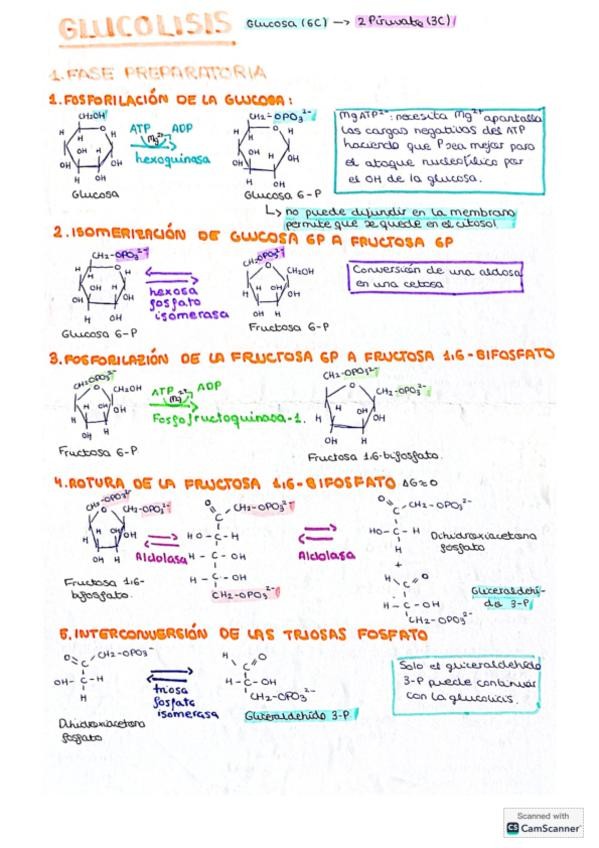 GLUCOLISIS Glucosa (6C) → 2 Piruvato (3C)
1. FASE PREPARATORIA
1. FOSFORILACIÓN DE LA GLUCOSA:
CH2OH
H
O
H
H
OH
H
OH
OH
H
OH
Glucosa
ATP ADP
Mg2+
hexoquinasa
CH2-OPO3 2-
H
O
H
H
OH
H
OH
OH
H
OH
Glucosa 6-P
MgATP2-: necesita Mg2+ apantalla
las cargas negativas del ATP
haciendo que P sea mejor para
el ataque nucleofílico por
el OH de la glucosa.
↳ no puede difundir en la membrana
permite que se quede en el citosol
2. ISOMERIZACIÓN DE GLUCOSA 6P A FRUCTOSA 6P
CH2-OPO3 2-
H
O
H
H
OH
H
OH
OH
H
OH
Glucosa 6-P
hexosa
fosfato
isomerasa
CH2OPO3 2-
O
CH2OH
H
OH
H
OH
OH
H
Fructosa 6-P
Conversión de una aldosa
en una cetosa
3. FOSFORILAZIÓN DE LA FRUCTOSA 6P A FRUCTOSA 1,6-BIFOSFATO
CH2OPO3 2-
O
CH2OH
H
OH
H
OH
OH
H
Fructosa 6-P
ATP ADP
Mg2+
Fosfofructoquinasa-1.
CH2-OPO3 2-
O
CH2-OPO3 2-
H
OH
H
OH
OH
H
Fructosa 1,6-bifosfato.
4. ROTURA DE LA FRUCTOSA 1,6-BIFOSFATO ΔG≈0
CH2-OPO3 2-
O
CH2-OPO3 2-
H
OH
H
OH
OH H
Fructosa 1,6-
bifosfato.
Aldolasa
O
C
CH2-OPO3 2-
HO - C - H
H - C - OH
H - C - OH
CH2-OPO3 2-
Aldolasa
O
C
CH2-OPO3 2-
HO- C - H
H
Dihidroxiacetona
fosfato
+
H
O
C
H - C - OH
CH2-OPO3 2-
Gliceraldehí-
do 3-P
5. INTERCONVERSIÓN DE LAS TRIOSAS FOSFATO
O
C
CH2-OPO3-
OH- C -H
H
Dihidroxiacetona
fosfato
triosa
fosfato
isomerasa
H
O
C
H-C-OH
CH2-OPO3 2-
Gliceraldehído 3-P
Solo el gliceraldehído
3-P puede continuar
con la glucolicis.
Scanned with
CS CamScanner